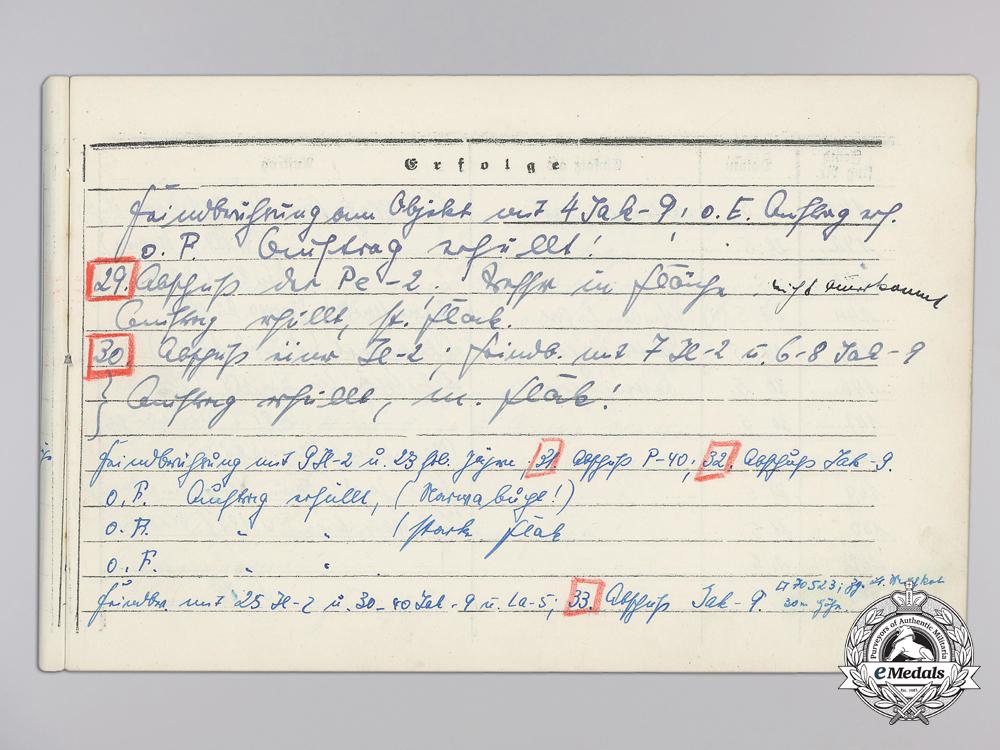 Erfolge
Feindberührung am Objekt mit 4 Jak-9, o. E. Auftrag erf.
o. F. Auftrag erfüllt!
29. Abschuß der Pe-2. Treffer in Fläche. nicht anerkannt
Auftrag erfüllt, st. Flak.
30 Abschuß einer Il-2; Feindb. mit 7 Il-2 u. 6-8 Jak-9
Auftrag erfüllt, m. Flak!
Feindberührung mit 9 Il-2 u. 23 Jäger, 31. Abschuß P-40; 32. Abschuß Jak-9.
o. F. Auftrag erfüllt, (Narwa
o. F. " " / stark Flak
o. F. " "
Feindber. mit 25 Il-2 u. 30-40 Jak-9 u. La-5; 33. Abschuß Jak-9. 70523;
30m Höhe
Purveyors of Authentic Militaria
eMedals